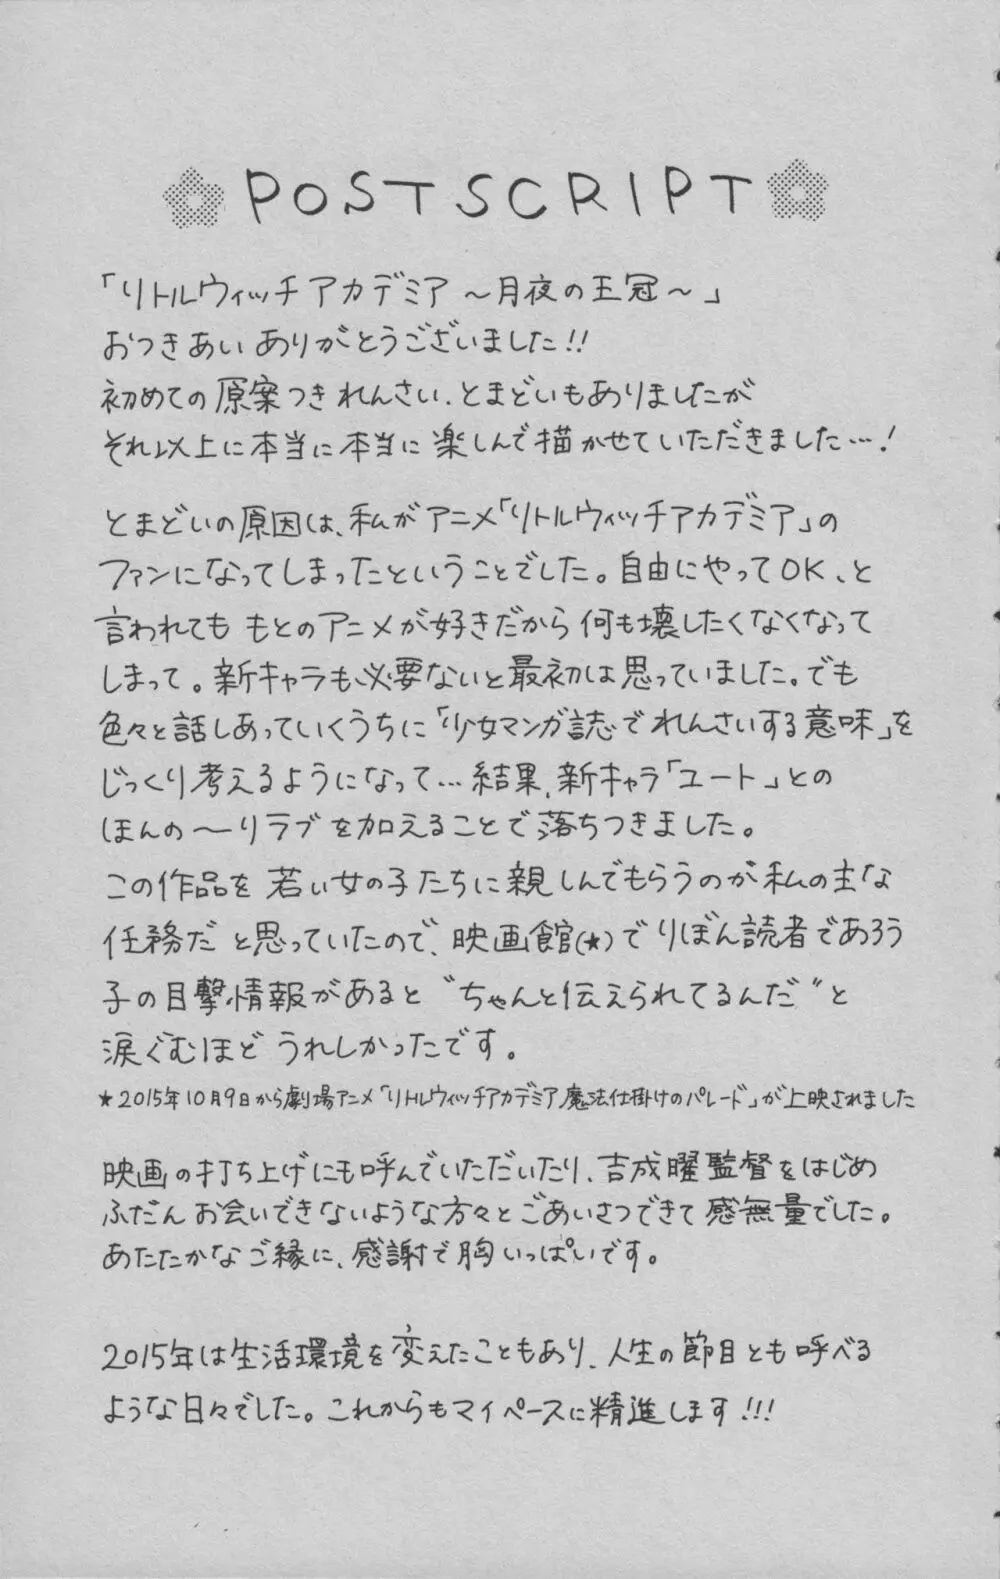 POSTSCRIPT
「リトルウィッチアカデミア〜月夜の王冠〜」
おつきあいありがとうございました!!
初めての原案つきれんさい、とまどいもありましたが
それ以上に本当に本当に楽しんで描かせていただきました…!
とまどいの原因は、私がアニメ「リトルウィッチアカデミア」の
ファンになってしまったということでした。自由にやってOK、と
言われてももとのアニメが好きだから何も壊したくなくなって
しまって。新キャラも必要ないと最初は思っていました。でも
色々と話しあっていくうちに「少女マンガ誌でれんさいする意味」を
じっくり考えるようになって…結果、新キャラ「ユート」との
ほんの〜りラブを加えることで落ちつきました。
この作品を若い女の子たちに親しんでもらうのが私の主な
任務だと思っていたので、映画館(★)でりぼん読者であろう
子の目撃情報があると“ちゃんと伝えられてるんだ”と
涙ぐむほどうれしかったです。
★2015年10月9日から劇場アニメ「リトルウィッチアカデミア魔法仕掛けのパレード」が上映されました
映画の打ち上げにも呼んでいただいたり、吉成曜監督をはじめ
ふだんお会いできないような方々とごあいさつできて感無量でした。
あたたかなご縁に、感謝で胸いっぱいです。
2015年は生活環境を変えたこともあり、人生の節目とも呼べる
ような日々でした。これからもマイペースに精進します!!!